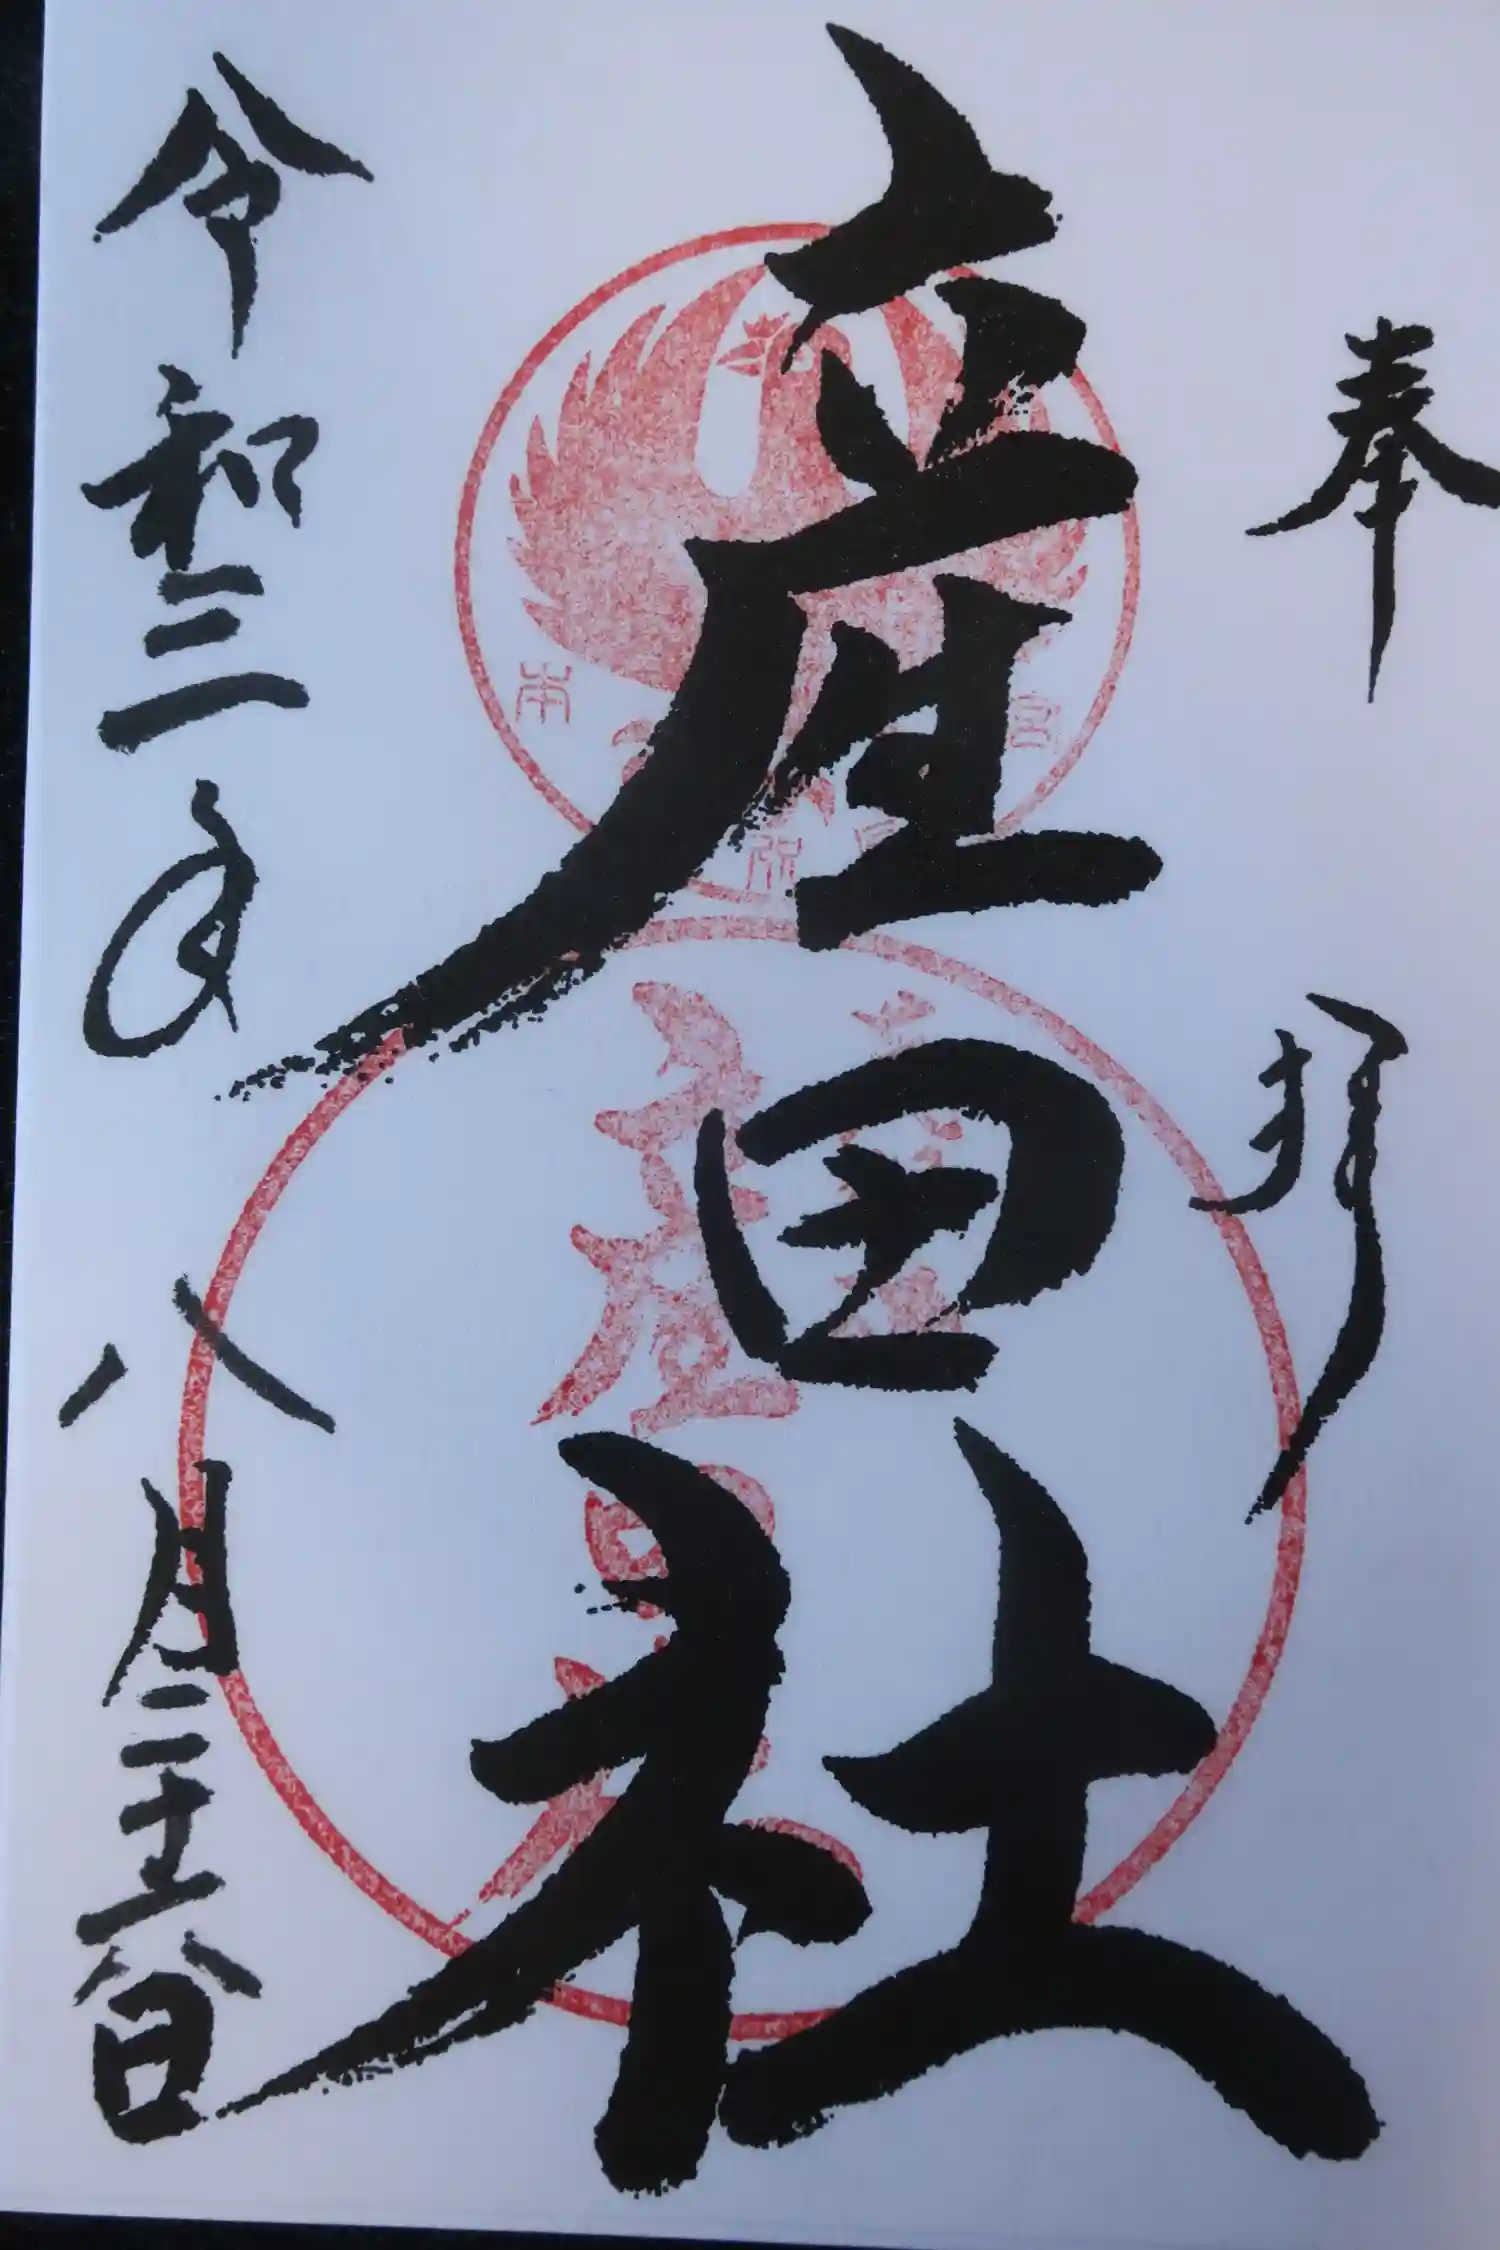 奉拝
産田社
令和三年八月二十八日